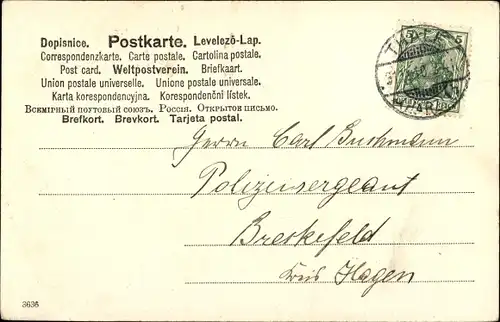 Dopisnice. Postkarte. Levelező-Lap.
Correspondenzkarte. Carte postale. Cartolina postale.
Post card. Weltpostverein. Briefkaart.
Union postale universelle. Unione postale universale.
Karta korespondencyjna. Korespondenční lístek.
Всемірный почтовый союзъ. Россія. Открытое письмо.
Brefkort. Brevkort. Tarjeta postal.
5 5
THALE
(HARZ)
Herrn Carl Buschmann
Polizeisergeant
Breckerfeld
Kreis Hagen
3636